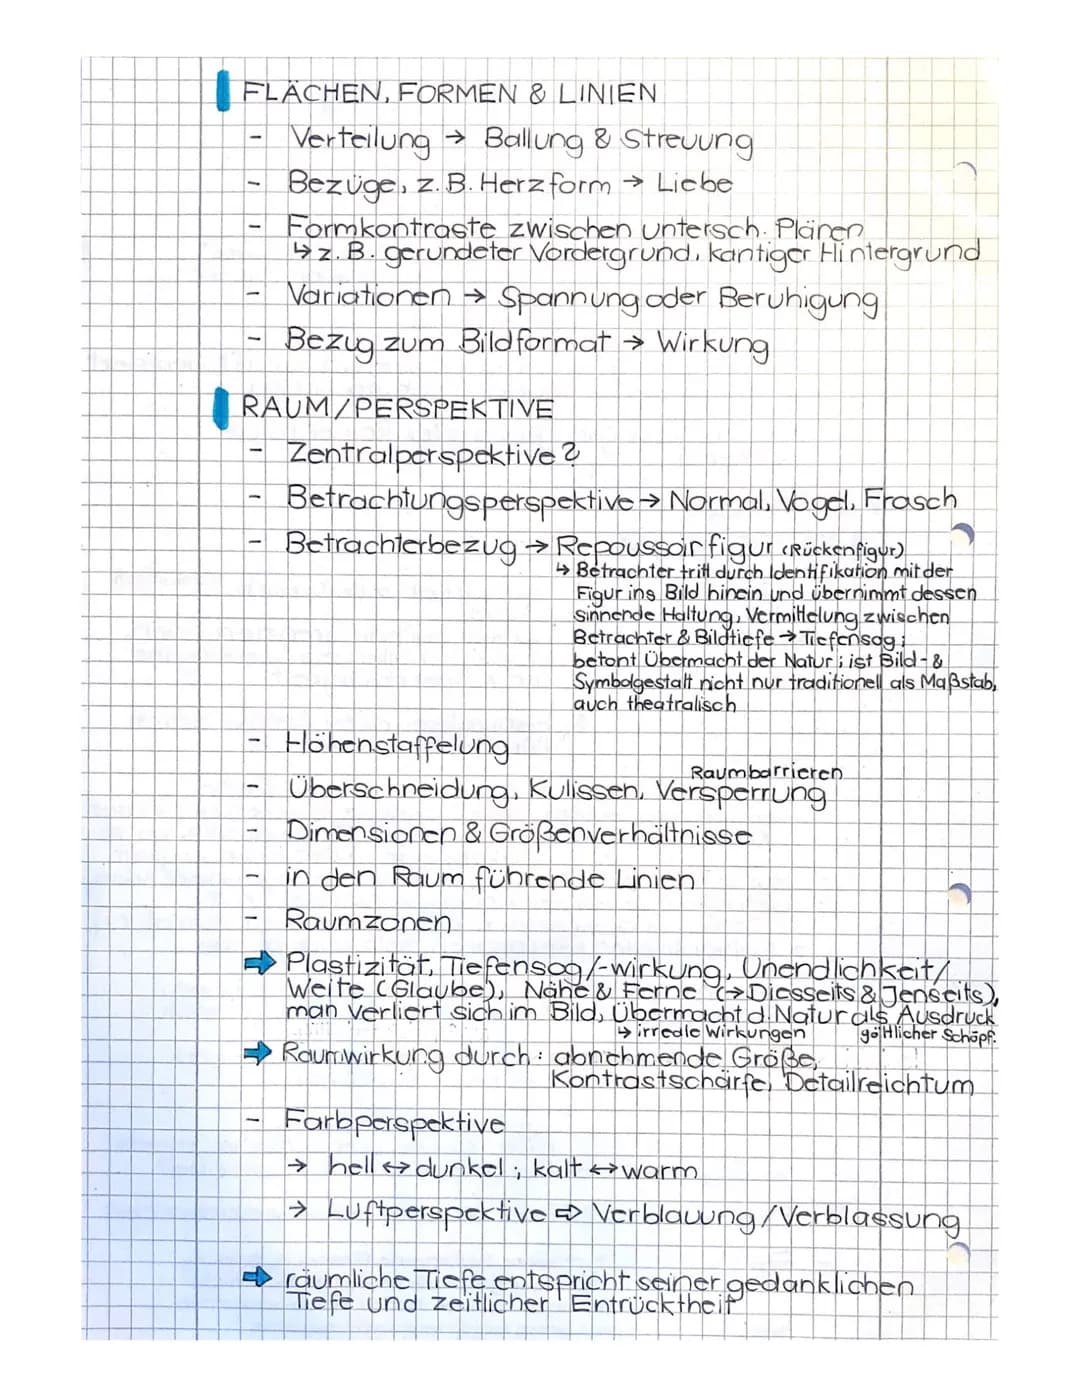 FLÄCHEN, FORMEN & LINIEN
- Verteilung → Ballung & Streuung
- Bezüge, z.B. Herzform → Liebe
- Formkontraste zwischen untersch. Plänen
↳ z.B. gerundeter Vordergrund, kantiger Hintergrund
- Variationen → Spannung oder Beruhigung
- Bezug zum Bildformat → Wirkung
RAUM/PERSPEKTIVE
- Zentralperspektive?
- Betrachtungsperspektive → Normal, Vogel, Frosch
- Betrachterbezug → Repoussoirfigur (Rückenfigur)
↳ Betrachter tritt durch Identifikation mit der
Figur ins Bild hinein und übernimmt dessen
sinnende Haltung, Vermittelung zwischen
Betrachter & Bildtiefe → Tiefensog;
betont Übermacht der Natur; ist Bild- &
Symbolgestalt nicht nur traditionell als Maßstab,
auch theatralisch
- Höhenstaffelung
Raumbarrieren
- Überschneidung, Kulissen, Versperrung
- Dimensionen & Größenverhältnisse
- in den Raum führende Linien
- Raumzonen
⇒ Plastizität, Tiefensog/-wirkung, Unendlichkeit/
Weite (Glaube), Nähe & Ferne (→ Diesseits & Jenseits),
man verliert sich im Bild, Übermacht d. Natur als Ausdruck
↳ irreale Wirkungen göttlicher Schöpf.
⇒ Raumwirkung durch: abnehmende Größe,
Kontrastschärfe, Detailreichtum
- Farbperspektive
→ hell ↔ dunkel; kalt ↔ warm
→ Luftperspektive ⇒ Verblauung/Verblassung
⇒ räumliche Tiefe entspricht seiner gedanklichen
Tiefe und zeitlicher Entrücktheit